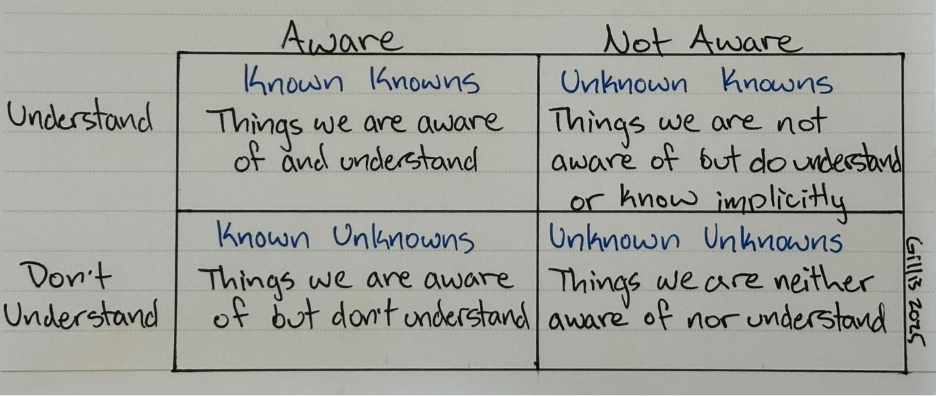 Aware
Not Aware
Understand
Known Knowns
Things we are aware
of and understand
Unknown Knowns
Things we are not
aware of but do understand
or know implicitly
Don't
Understand
Known Unknowns
Things we are aware
of but don't understand
Unknown Unknowns
Things we are neither
aware of nor understand
GillB 2025